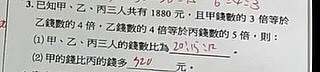 3. 已知甲、乙、丙三人共有 1880 元,且甲錢數的 3 倍等於
乙錢數的 4 倍,乙錢數的 4 倍等於丙錢數的 5 倍,則:
(1) 甲、乙、丙三人的錢數比為 20:15:12 。
(2) 甲的錢比丙的錢多 320 元。